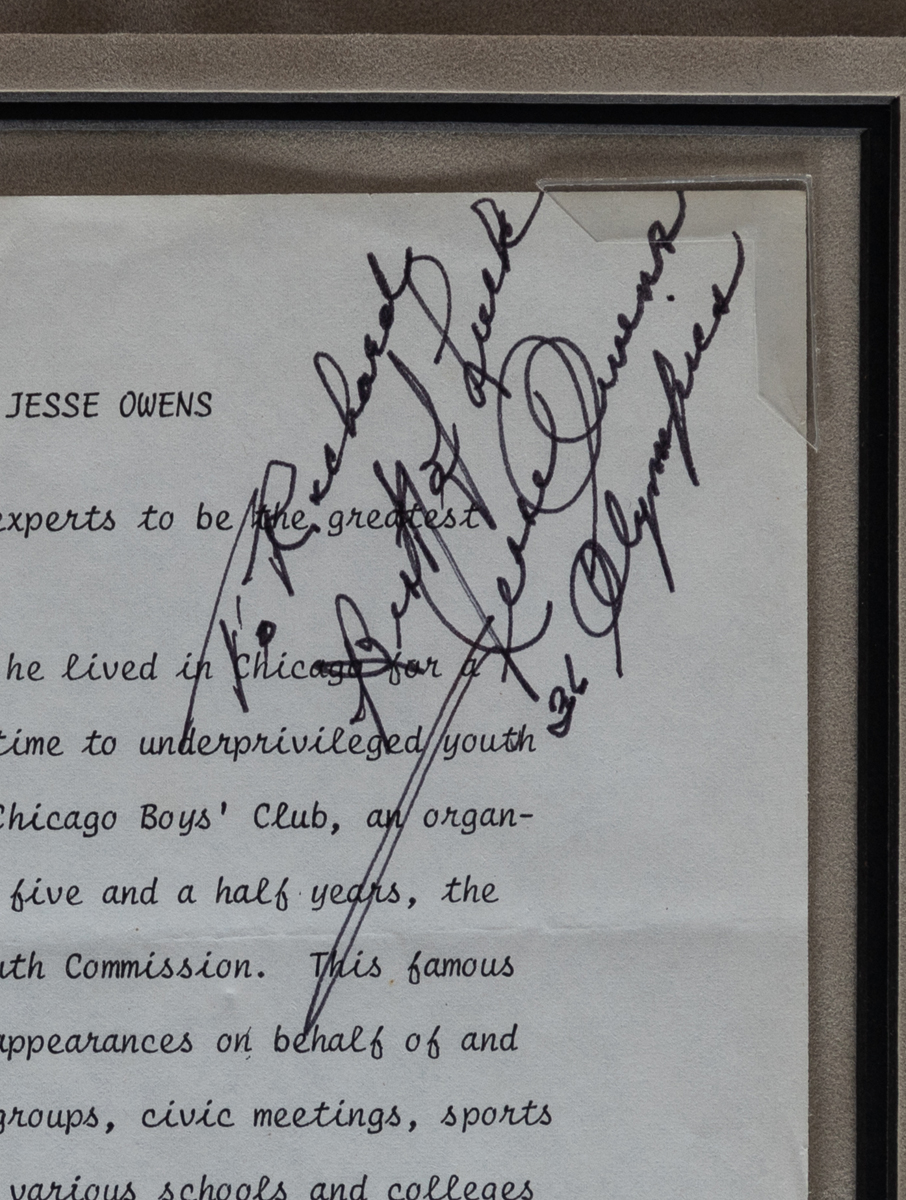 To Richard
Best of Luck
Jesse Owens
36 Olympics
JESSE OWENS
experts to be the greatest
he lived in Chicago for a
time to underprivileged youth
Chicago Boys' Club, an organ-
five and a half years, the
uth Commission. This famous
appearances on behalf of and
groups, civic meetings, sports
various schools and colleges